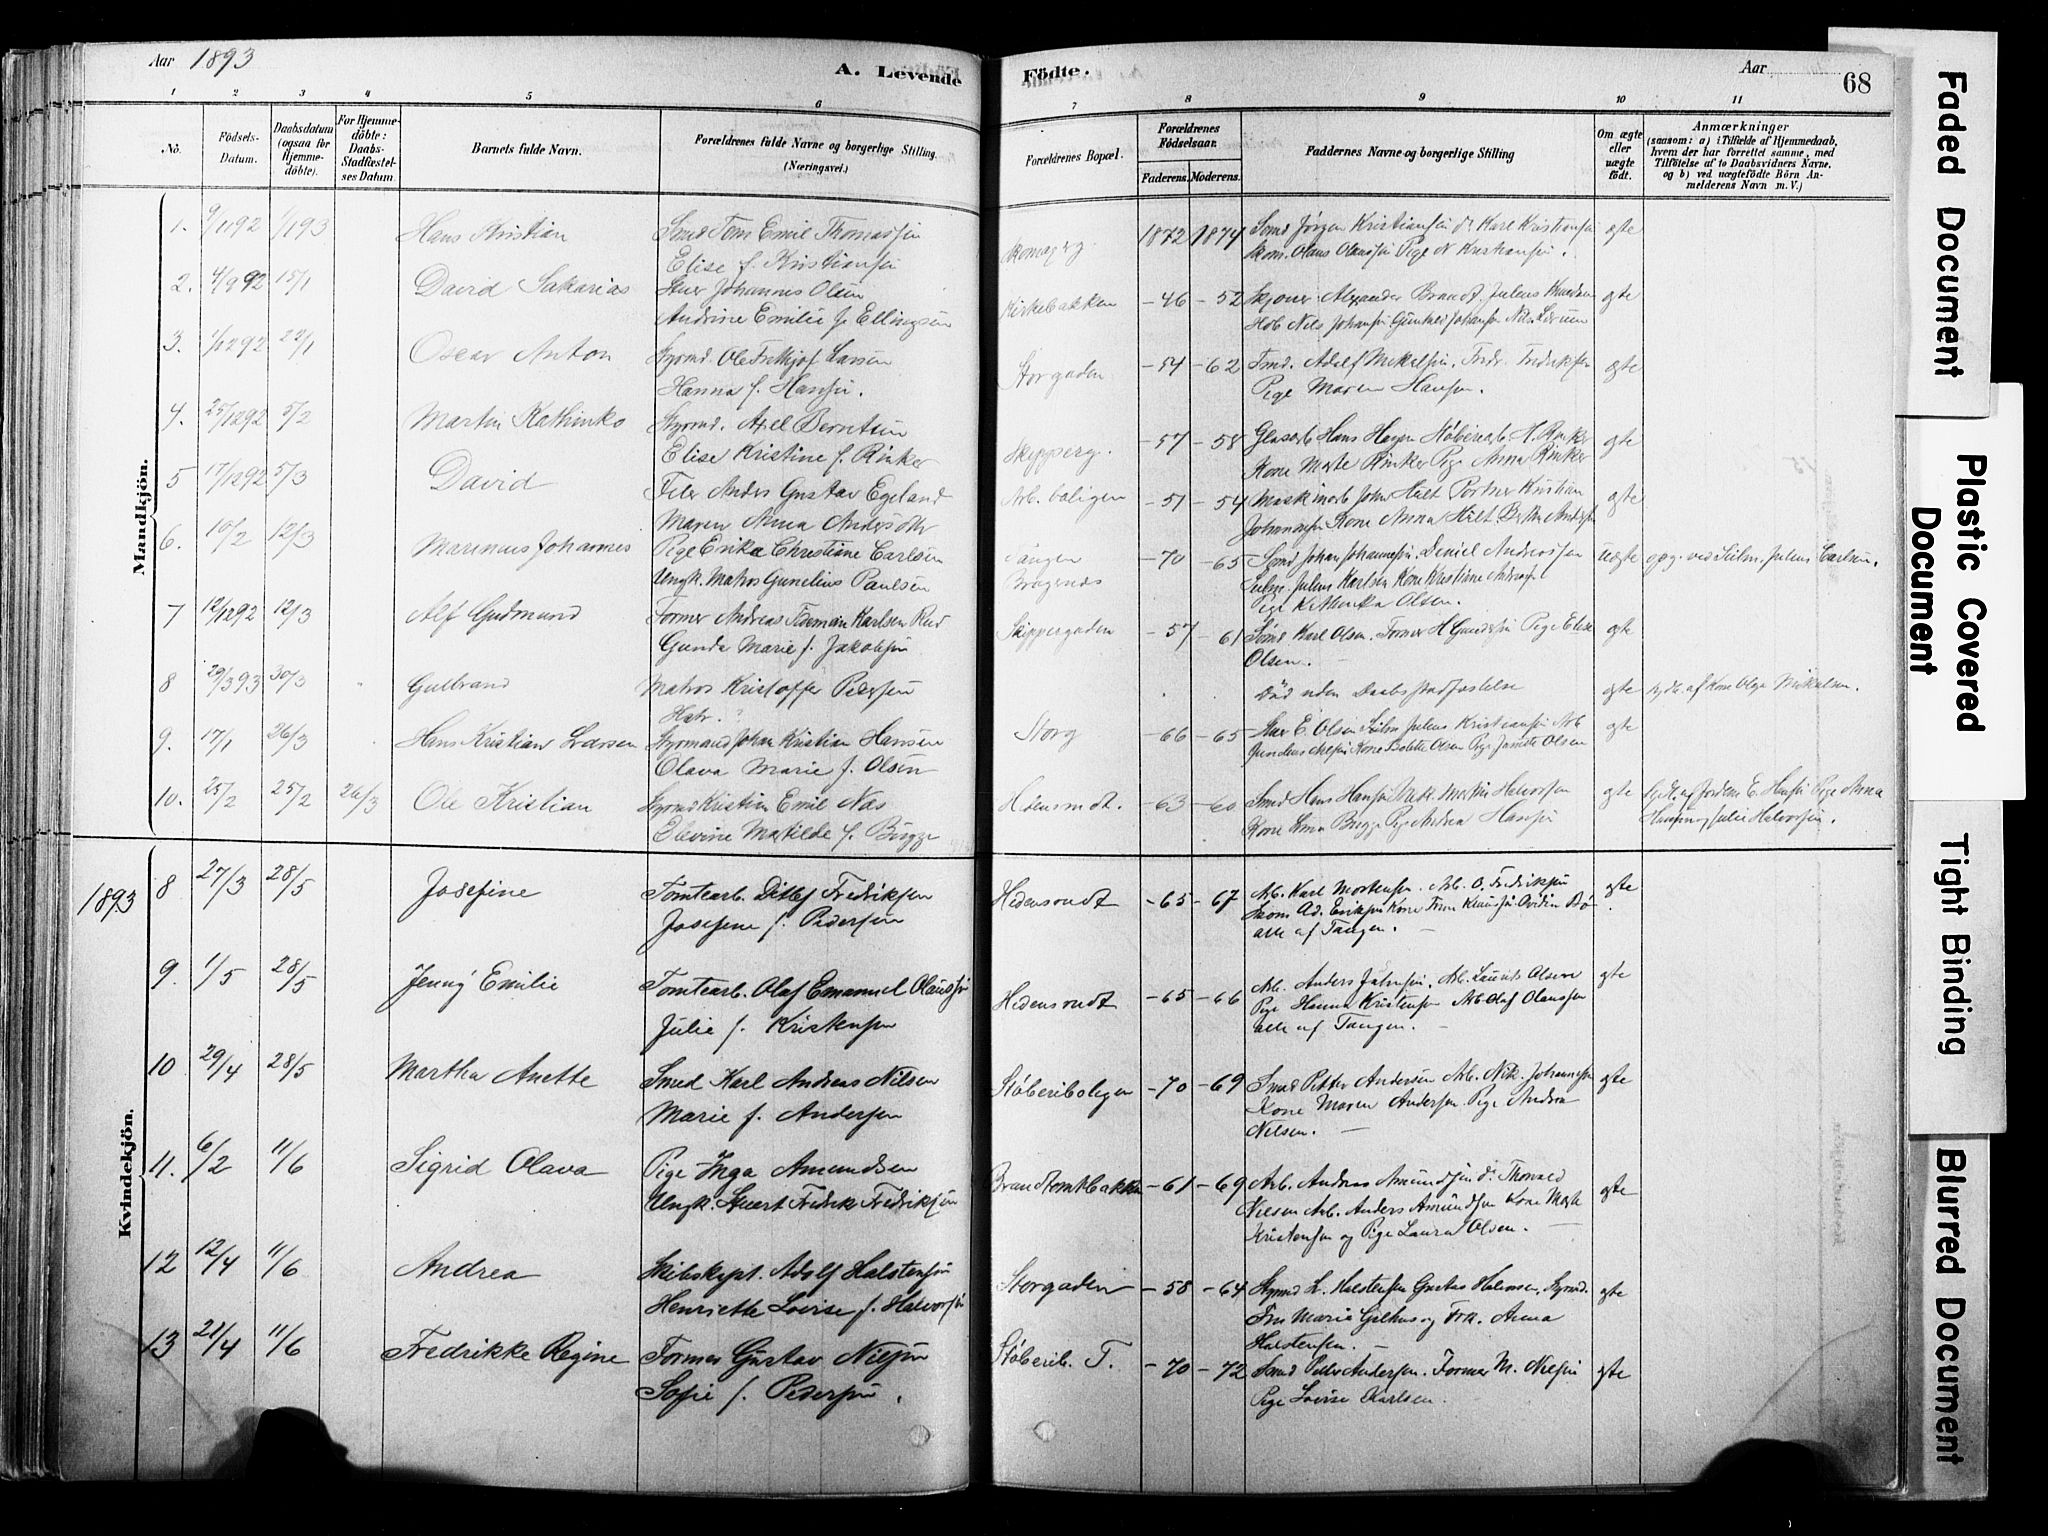 Aar 1893
A. Levende Födte.
Aar
68
1 2 3 4 5 6 7 8 9 10 11
No.
Födsels-Datum.
Daabsdatum (ogsaa for Hjemmedöbte).
For Hjemmedöbte: Daabs-Stadfæstelses Datum.
Barnets fulde Navn.
Forældrenes fulde Navne og borgerlige Stilling (Næringsvei.)
Forældrenes Bopæl.
Forældrenes Födselsaar.
Faderens. Moderens.
Faddernes Navne og borgerlige Stilling
Om ægte eller uægte födt.
Anmærkninger
(saasom: a) i Tilfælde af Hjemmedaab, hvem der har forrettet samme, med Tilföielse af to Daabsvidners Navne, og b) ved uægtefödte Börn Anmelderens Navn m. V.)
Mandkjön.
1. 9/11 92 1/1 93 Hans Kristian Smed Tom Emil Thomassen 1872 1874 Smd Jörgen Kristiansen Karl Kristiansen ægte
Elise f. Kristiansen Skom. Olaus Olaussen Pige N Kristiansen.
2. 4/9 92 15/1 David Sakarias Stuer Johannes Olsen Kirkebakken -46 -52 Alexander Brandt Julius Knudsen ægte
Andrine Emilie f. Ellingsen Nils Johansen
3. 1/12 92 22/1 Oscar Anton Styrmd. Ole Frithjof Larsen Storgaden -54 -62 Tmd. Adolf Mikelsen. Fredr. Fredriksen ægte
Hanna f. Hansen. Pige Maren Hansen.
4. 25/12 92 5/2 Martin Kathinko Styrmd. Axel Berntsen Skipperg. -57 -58 Hans Hagen ægte
Elise Kristine f. Rinker Kone Marte Rinker Pige Anna Rinker
5 17/12 92 5/3 David Filer Anders Gustav Egeland Arb. boligen -51 -54 Maskinarb John Hilt Portner Kristian ægte
Maren Anna Andersdtr Johannesen Kone Anna Hilt
6. 10/2 12/3 Marinius Johannes Pige Erika Christine Carlsen Tangen -70 -65 Smd Johan Johannesen. Daniel Andersen Uægte opg. ved Seilm. Julius Carlsen.
Ungk. Matros Gunelius Paulsen Bragernæs Seilm. Julius Karlsen Kone Kristine
Pige Kathinka Olsen.
7 12/12 92 12/3 Alf Gudmund Former Andreas Fideman Karlsen Rud Skippergaden -57 -61 Smd Karl Olsen. Former H Gundersen Pige Elise ægte
Gunda Marie f. Jakobsen Olsen.
8 29/3 93 30/3 Gulbrand Matros Kristoffer Pedersen Död uden Daabsstadfæstelse ægte hjdb. af Kone Olga Mikkelsen.
9. 17/1 26/3 Hans Kristian Larsen Styrmand Johan Kristian Hansen Storg -66 -65 Stuer E. Olsen Seilm Julius Kristiansen Arb ægte
Olava Marie f. Olsen Kone Bolette Olsen Pige Olsen
10. 25/2 25/2 26/3 Ole Kristian Styrmd Kristian Emil Næs Hedensrudt. -63 -60 Smed Hans Hansen Martin Halvorsen ægte E. Hansen Pige Anna
Elevine Matilde f. Bugge Kone Bugge Pige Andrea Hansen Julie Halvorsen.
1893
Kvindekjön.
8 27/3 28/5 Josefine Tomtearb. Ditlef Fredriksen Hedensrudt -65 -67 Arb. Karl Mortensen. Arb. O. Fredriksen ægte
Josefine f. Pedersen Skom Ad. Eriksen Kone
alle af Tangen.
9. 1/5 28/5 Jenny Emilie Tomtearb. Olaf Emanuel Olaussen Hedensrudt -65 -66 Arb. Anders Arb. Laurits Olsen ægte
Julie f. Kristensen Pige Hanna Kristensen Arb Olaf Olaussen
alle af Tangen.
10 29/4 28/5 Martha Anette Smed Karl Andreas Nilsen Stöberiboligen -70 -69 Smed Petter Andersen Arb. Nik. Johannesen ægte
Marie f. Andersen Kone Maren Andersen. Pige Andrea
Nilsen.
11. 6/2 11/6 Sigrid Olava Pige Inga Amundsen Brandtomtbakken -61 -69 Arb. Andreas Amundsen Thorvald ægte
Ungk. Stuert Fredrik Fredriksen Nilsen Arb. Anders Amundsen Kone Marte
Kristensen og Pige Laura Olsen.
12 12/4 11/6 Andrea Skibskapt. Adolf Halstensen Storgaden -58 -64 Styrmd L. Halstensen Gustav Halvorsen, Styrmd. ægte
Henriette Lovise f. Halvorsen Fru Marie Gilhus og Frk. Anna
Halstensen.
13 21/4 11/6 Fredrikke Regine Former Gustav Nilsen Stöberib. T. -70 -72 Smed Petter Andersen. Former M. Nilsen ægte
Sofie f. Pedersen. Pige Lovise Karlsen.
Faded Document
Plastic Covered Document
Tight Binding
Blurred Document